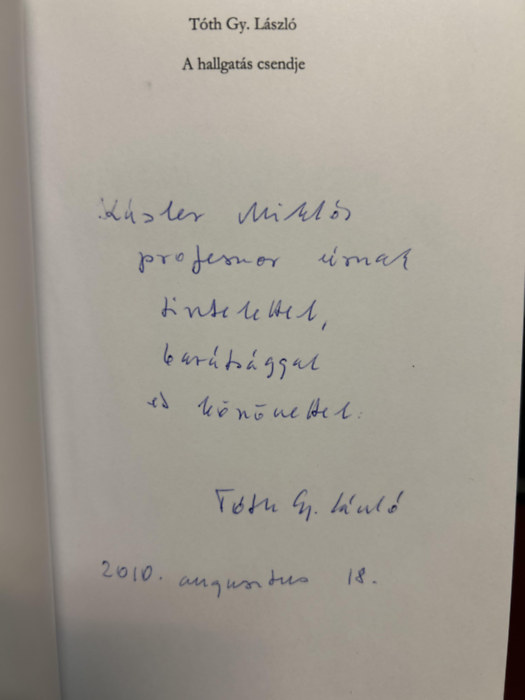 Tóth Gy. László
A hallgatás csendje
Kásler Miklós
professzor úrnak
tisztelettel,
barátsággal
és köszönettel.
Tóth Gy. László
2010. augusztus 18.